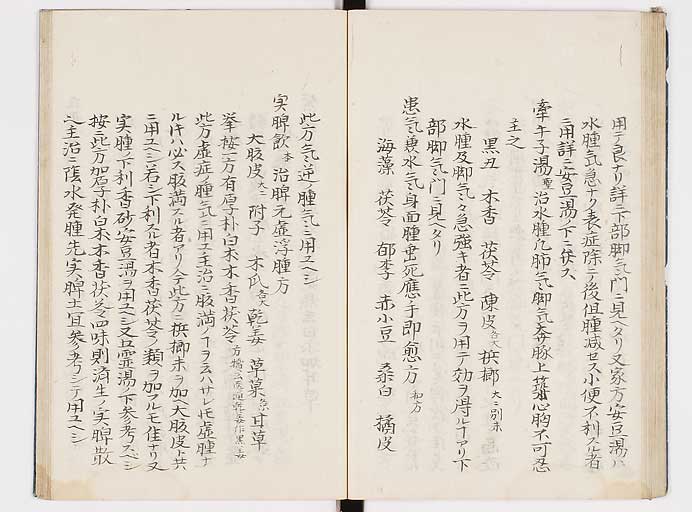 用テ良ナリ詳ニ下部脚気門ニ見ヘタリ又家方安豆湯ハ
水腫気急ナク表症除テ後但腫減セス小便不利スル者
ニ用詳ニ安豆湯ノ下ニ伏ス
牽牛子湯 治水腫凡肺気脚気奔豚上築心胸不可忍
主之
黒丑 木香 茯苓 陳皮各大 梹榔大ニ別末
水腫及脚気ノ急強キ者ニ此方ヲ用テ効ヲ得ルアリ下
部脚気門ニ見ヘタリ
患気兼水気身面腫垂死應手即愈方和方
海藻 茯苓 郁李 赤小豆 桑白 橘皮
此方気逆ノ腫気ニ用ユヘシ
実脾飲本 治脾元虚浮腫方
大腹皮大ニ 附子 木瓜各大 乾姜 草菓各 甘草
挙按一方有厚朴白木木香茯苓
此方虚症ノ腫気ニ用ユ主治ニ腹満ノヿヲ云ハサレ𪜈虚腫ナ
ルキハ必ス腹満スル者アリ今此方ニ梹榔末ヲ加大腹皮ト共
ニ用ユヘシ若シ下利スル者木香茯苓ノ類ヲ加フルモ佳ナリ又
実腫ノ下利ニ香砂安豆湯ヲ用ユヘシ又五霊湯ノ下参考スヘシ
按ニ此方加厚朴白木木香茯苓四味則済生ノ実脾散
也主治ニ陰水発腫先実脾土宜参考シテ用ユヘシ